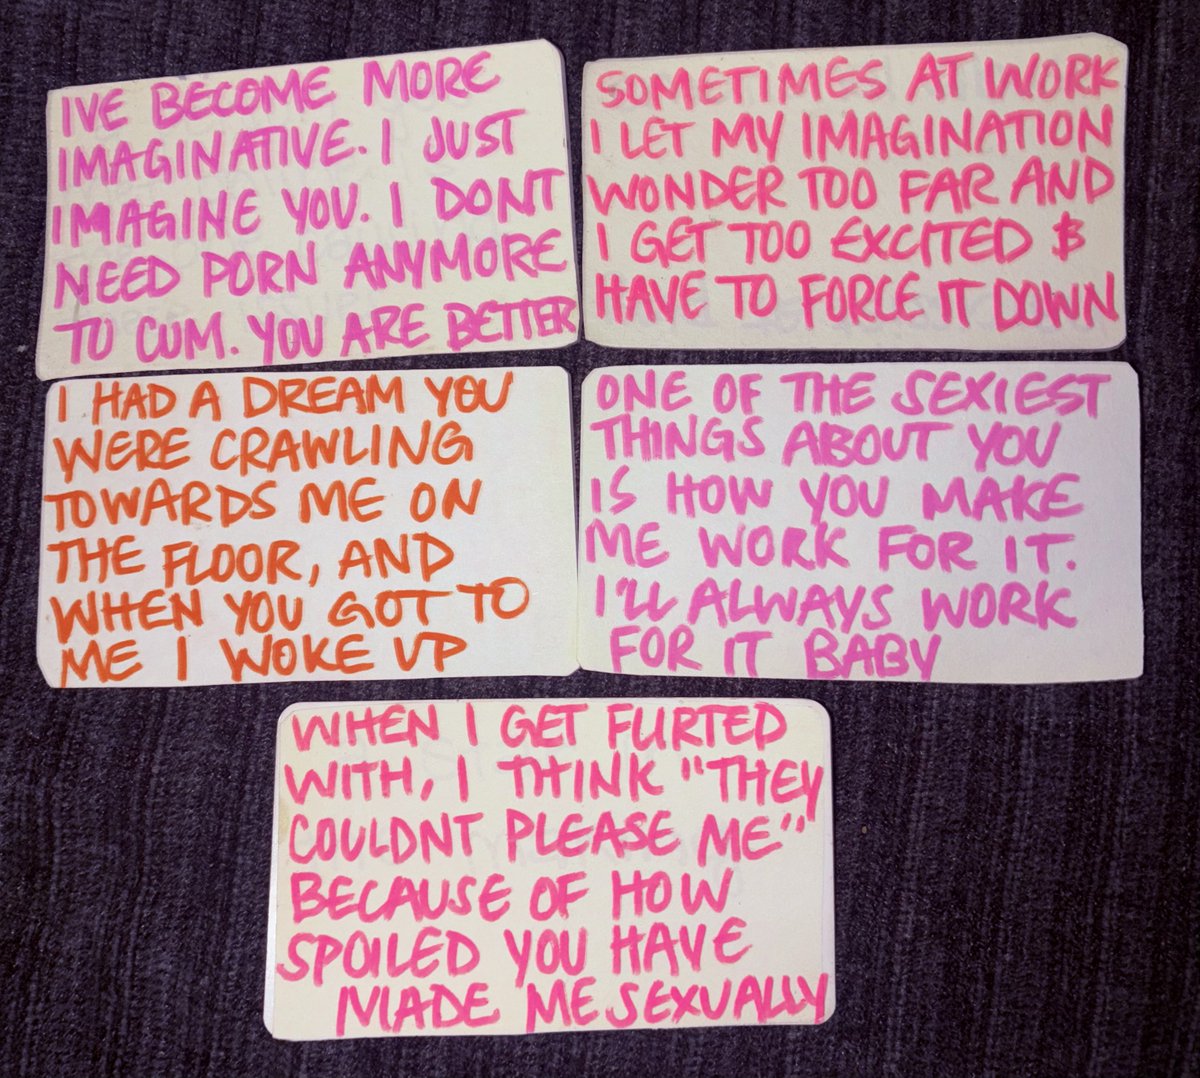 IVE BECOME MORE
IMAGINATIVE. I JUST
IMAGINE YOU. I DONT
NEED PORN ANYMORE
TO CUM. YOU ARE BETTER
SOMETIMES AT WORK
I LET MY IMAGINATION
WONDER TOO FAR AND
I GET TOO EXCITED &
HAVE TO FORCE IT DOWN
I HAD A DREAM YOU
WERE CRAWLING
TOWARDS ME ON
THE FLOOR, AND
WHEN YOU GOT TO
ME I WOKE UP
ONE OF THE SEXIEST
THINGS ABOUT YOU
IS HOW YOU MAKE
ME WORK FOR IT.
I'LL ALWAYS WORK
FOR IT BABY
WHEN I GET FLIRTED
WITH, I THINK "THEY
COULDNT PLEASE ME"
BECAUSE OF HOW
SPOILED YOU HAVE
MADE ME SEXUALLY